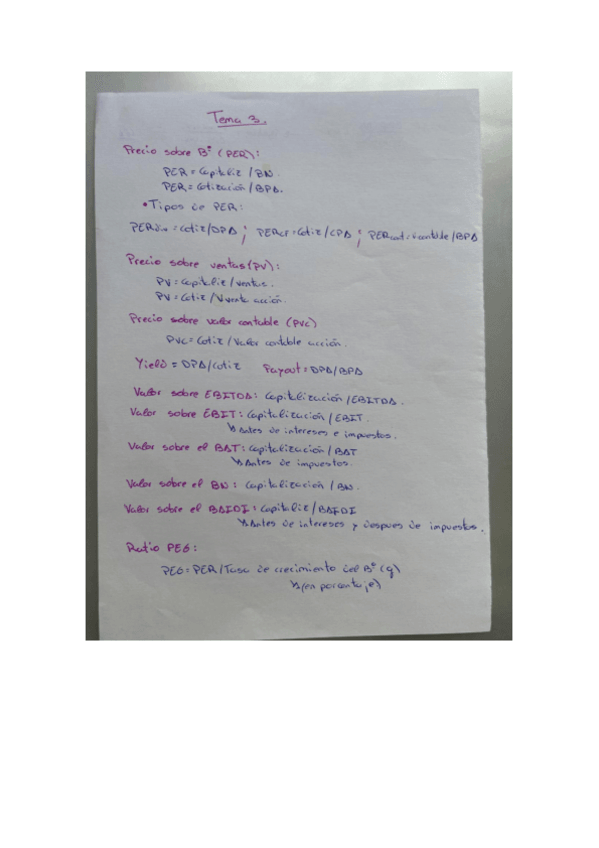 Tema 3.
Precio sobre Bº (PER):
PER = Capitaliz / BN.
PER = Cotización / BPA.
• Tipos de PER:
PERdiv = Cotiz/DPA ; PERCF = Cotiz/CPA ; PERcont = V.contable/BPA
Precio sobre ventas (PV):
PV = Capitaliz / ventas.
PV = Cotiz / Vventa acción.
Precio sobre valor contable (PVC)
PVC = Cotiz / Valor contable acción.
Yield = DPA/cotiz Payout = DPA/BPA
Valor sobre EBITDA: Capitalización / EBITDA.
Valor sobre EBIT: Capitalización / EBIT.
↳ Antes de intereses e impuestos.
Valor sobre el BAT: Capitalización / BAT
↳ Antes de impuestos.
Valor sobre el BN: Capitalización / BN.
Valor sobre el BAIDI: Capitaliz / BAIDI
↳ Antes de intereses y despues de impuestos.
Ratio PEG:
PEG = PER / Tasa de crecimiento del Bº (g)
↳ (en porcentaje)